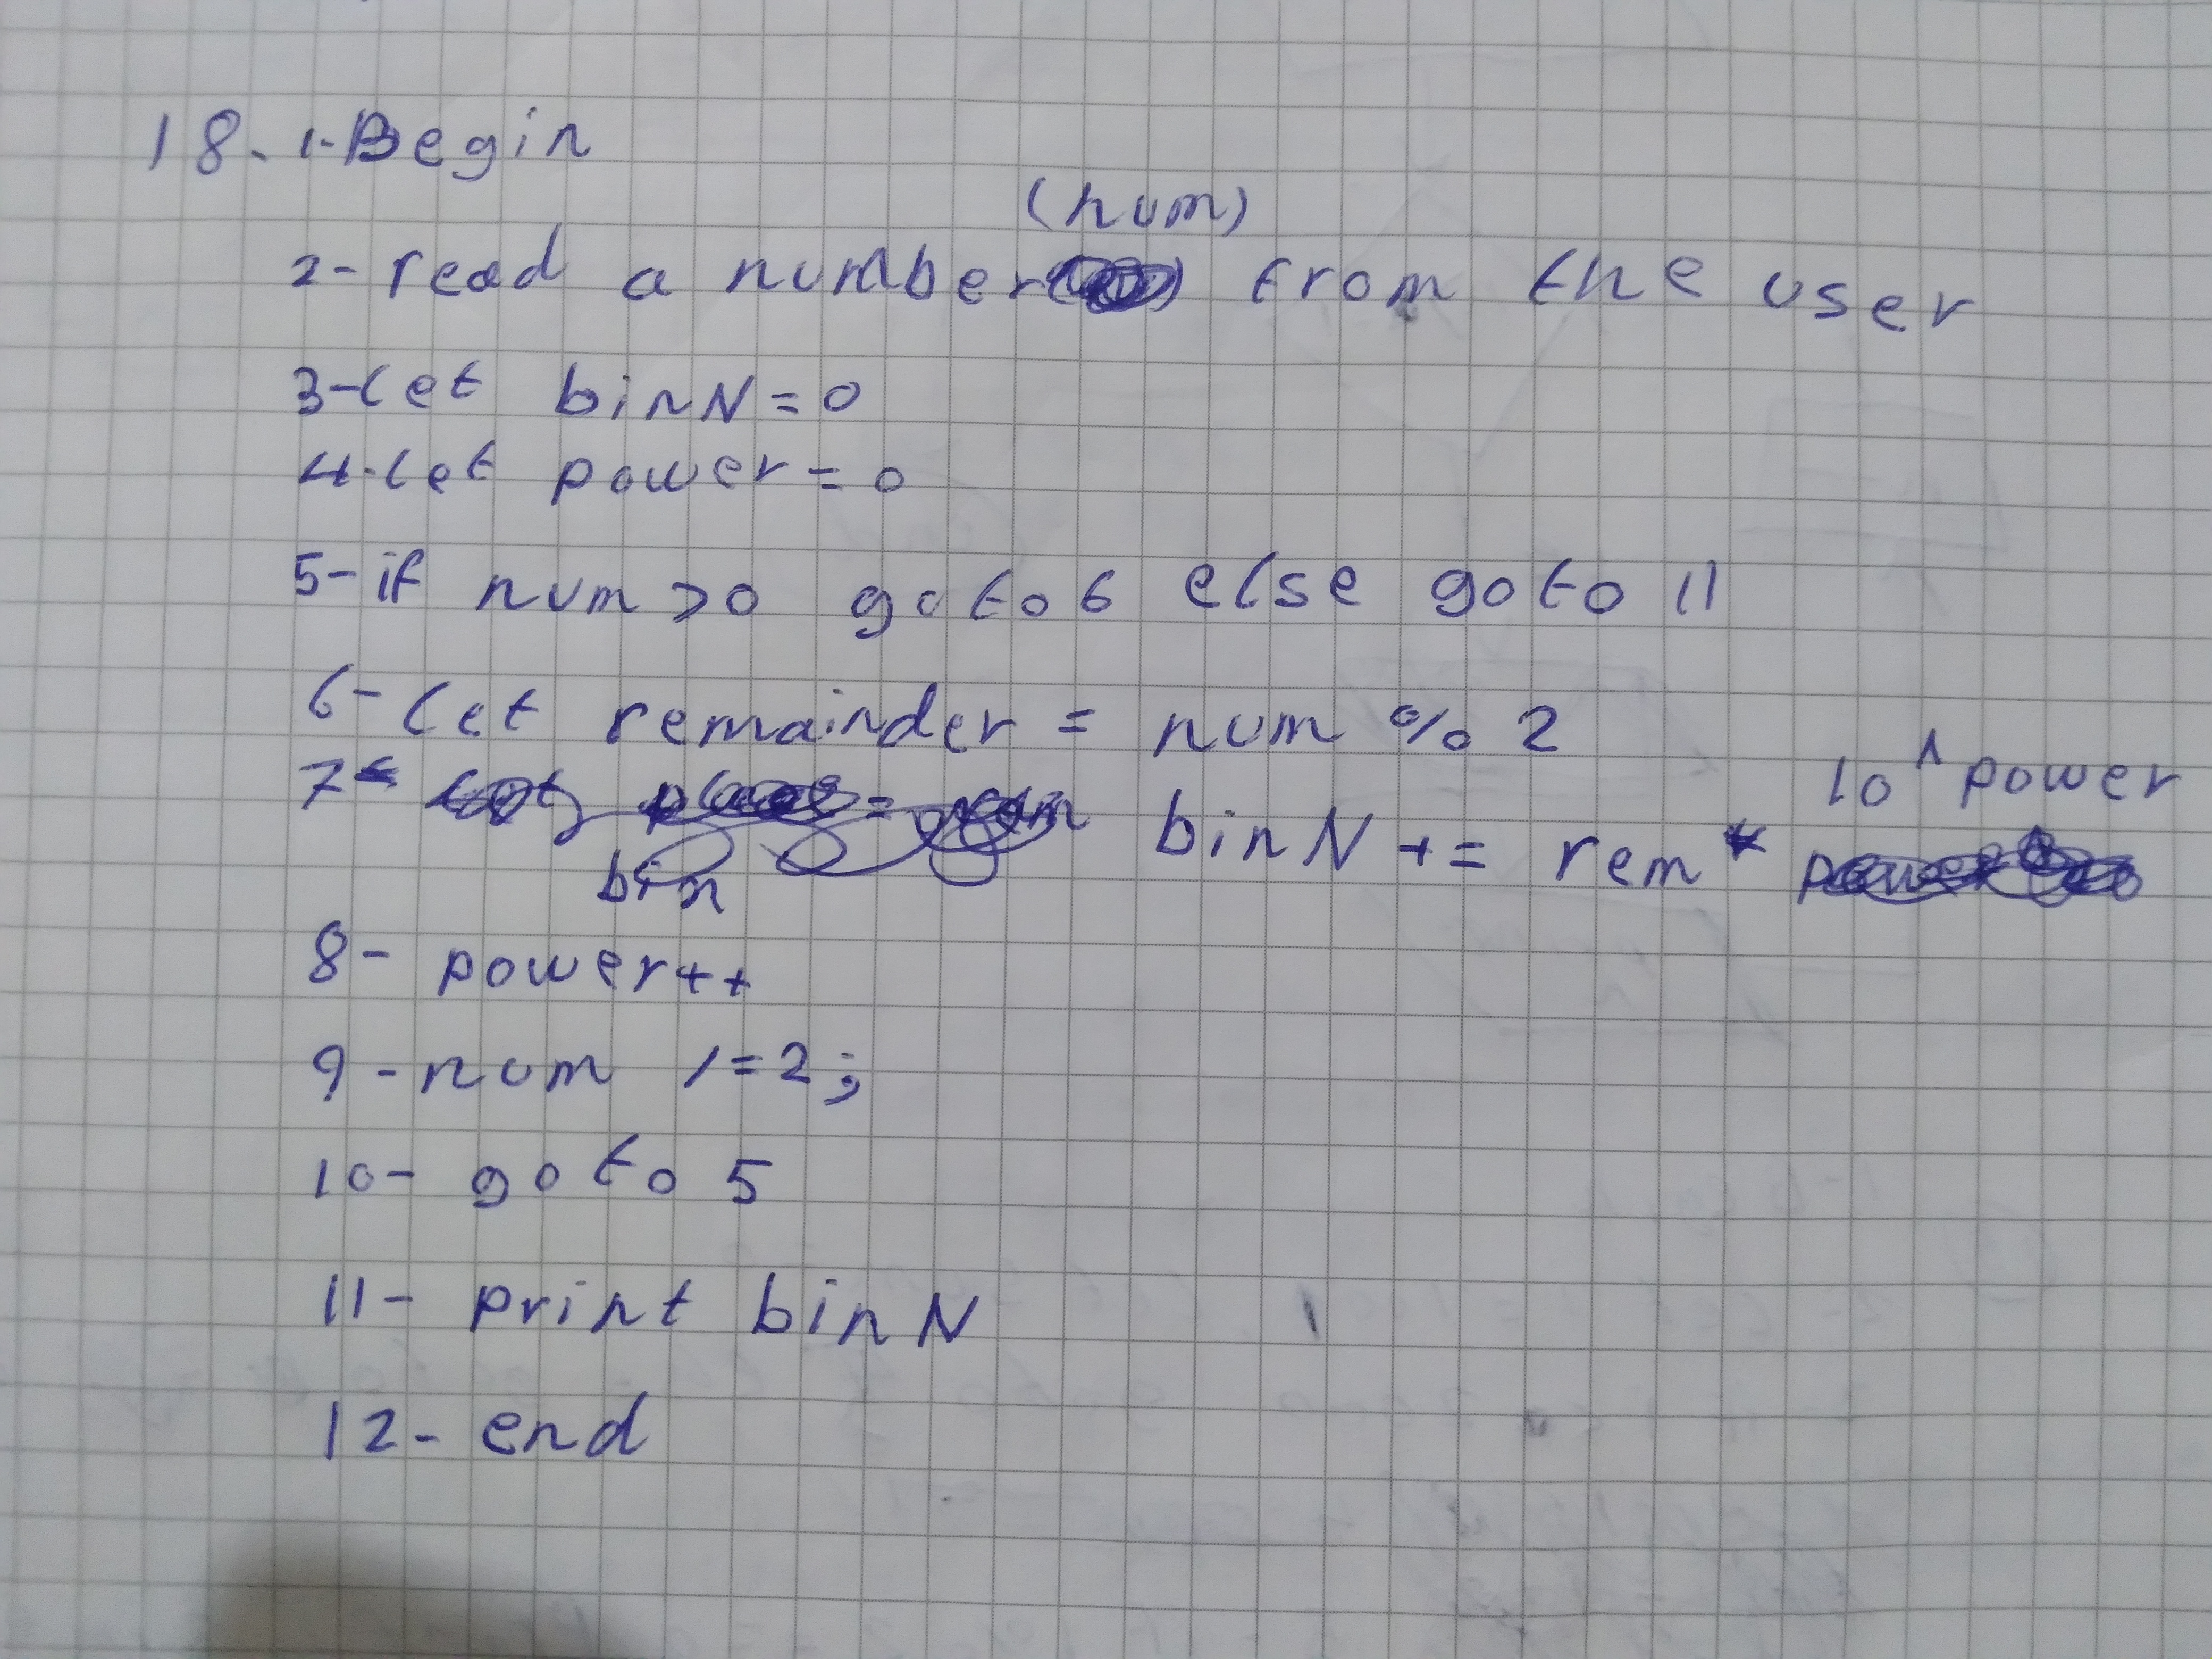 18. 1-Begin
(num)
2- read a number from the user
3-let binN=0
4-let power=0
5-if num>0 goto 6 else goto 11
6- let remainder = num % 2
10^power
7- binN += rem*
bin
8- power++
9-num /=2;
10- goto 5
11- print binN
12- end